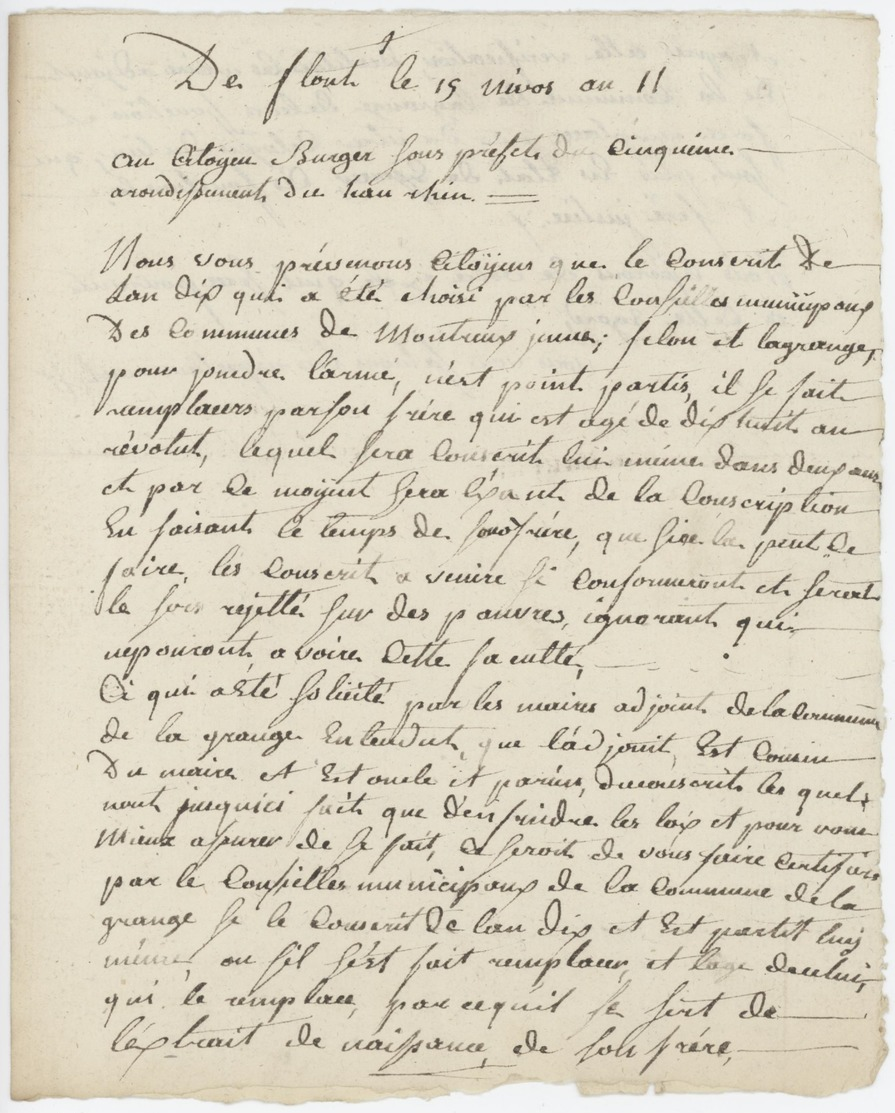 De flont le 15 nivos an 11
au Citoÿen Burger sous préfet du Cinquiéme
arondissement du hau rhin.
Nous vous prévenons Citoÿens que le Conscrit De
Lan dix qui a été choisi par les Conseilles municipaux
Des Communes de Montreux jeune; felon et lagrange,
pour joindre l'armé, n'est point partis, il se fait
remplacers par son frére qui est agé de dix huit an
révolut, lequel sera Conscrit lui méme dans deux ans
et par ce moÿent sera éxant de la Conscription
En faisant le temps de son frére, que si la peut se
faire, les Conscrit a venire si conformeront et serat
le sors rejetté sur des pauvres, ignorant qui
nepouront avoire Cette faculté,
Ci qui a Eté solicité par les maires adjoint de la Commune
de la grange Entendut, que l'adjoint, Est Cousin
Du maire et Est oncle et parain, du conscrit les quels
nont jusquici fait que d'enfreindre les loix et pour vous
Mieux assurer de se fait, ce seroit de vous faire certifier
par le Conseilles municipaux de la Commune de la
grange se le Conscrit De lan dix et Est partit luy
méme ou sil s'est fait remplacer, et lage de celui,
qui le remplace, par cequil se sert de
l'éxtrait de naissance, de son frére,